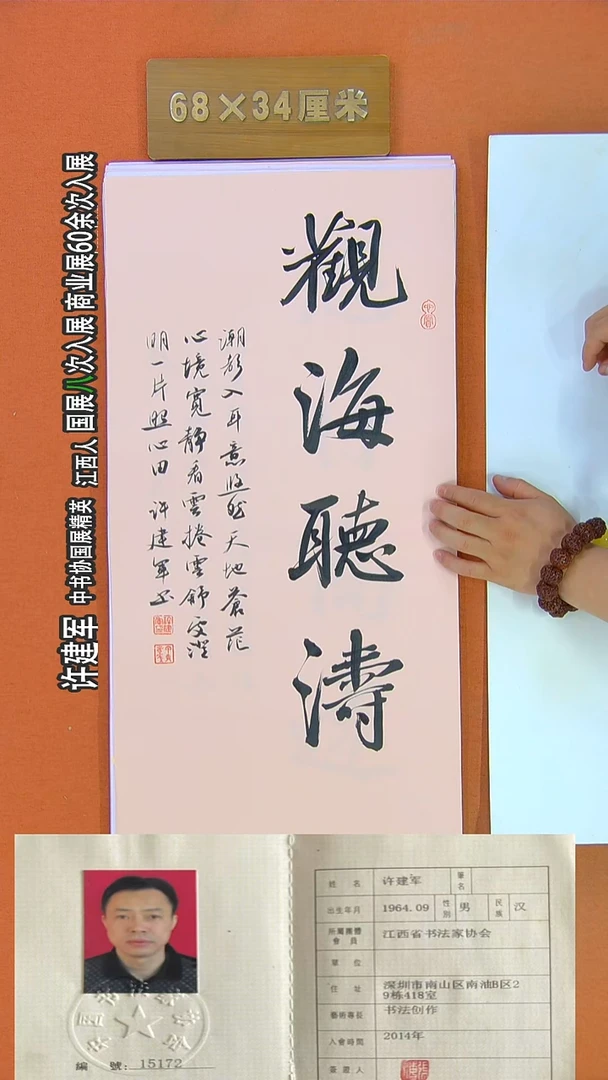 68×34厘米
许建军 中书协国展精英 江西人 国展八次入展 商业展60余次入展
觀海聽濤
潮声入耳意悠然天地蒼茫
心境寬静看雲捲雲舒更澄
明一片照心田 许建军书
姓名 许建军 筆名
出生年月 1964.09 性别 男 民族 汉
所屬團體會員 江西省书法家协会
單位
住址 深圳市南山区南油B区29栋418室
藝術專長 书法创作
入會時間 2014年
簽證人
編號：15172